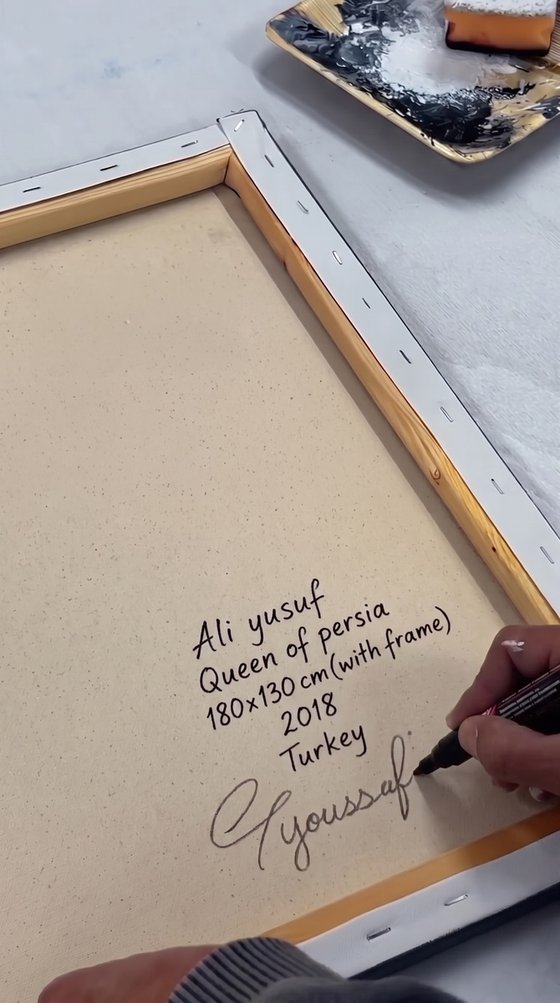 Ali yusuf
Queen of persia
180x130 cm (with frame)
2018
Turkey
youssaf